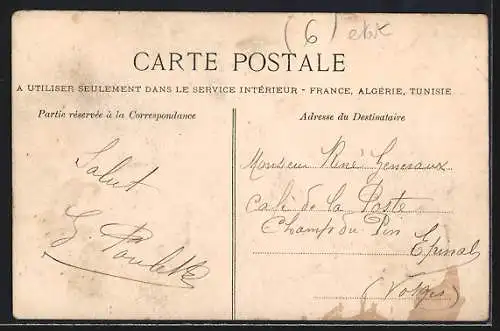 (6)
CARTE POSTALE
A UTILISER SEULEMENT DANS LE SERVICE INTÉRIEUR - FRANCE, ALGÉRIE, TUNISIE
Partie réservée à la Correspondance
Salut
G. Poulet
Adresse du Destinataire
Monsieur René Generaux
Café de la Poste
Champ du Pin
Epinal
(Vosges)